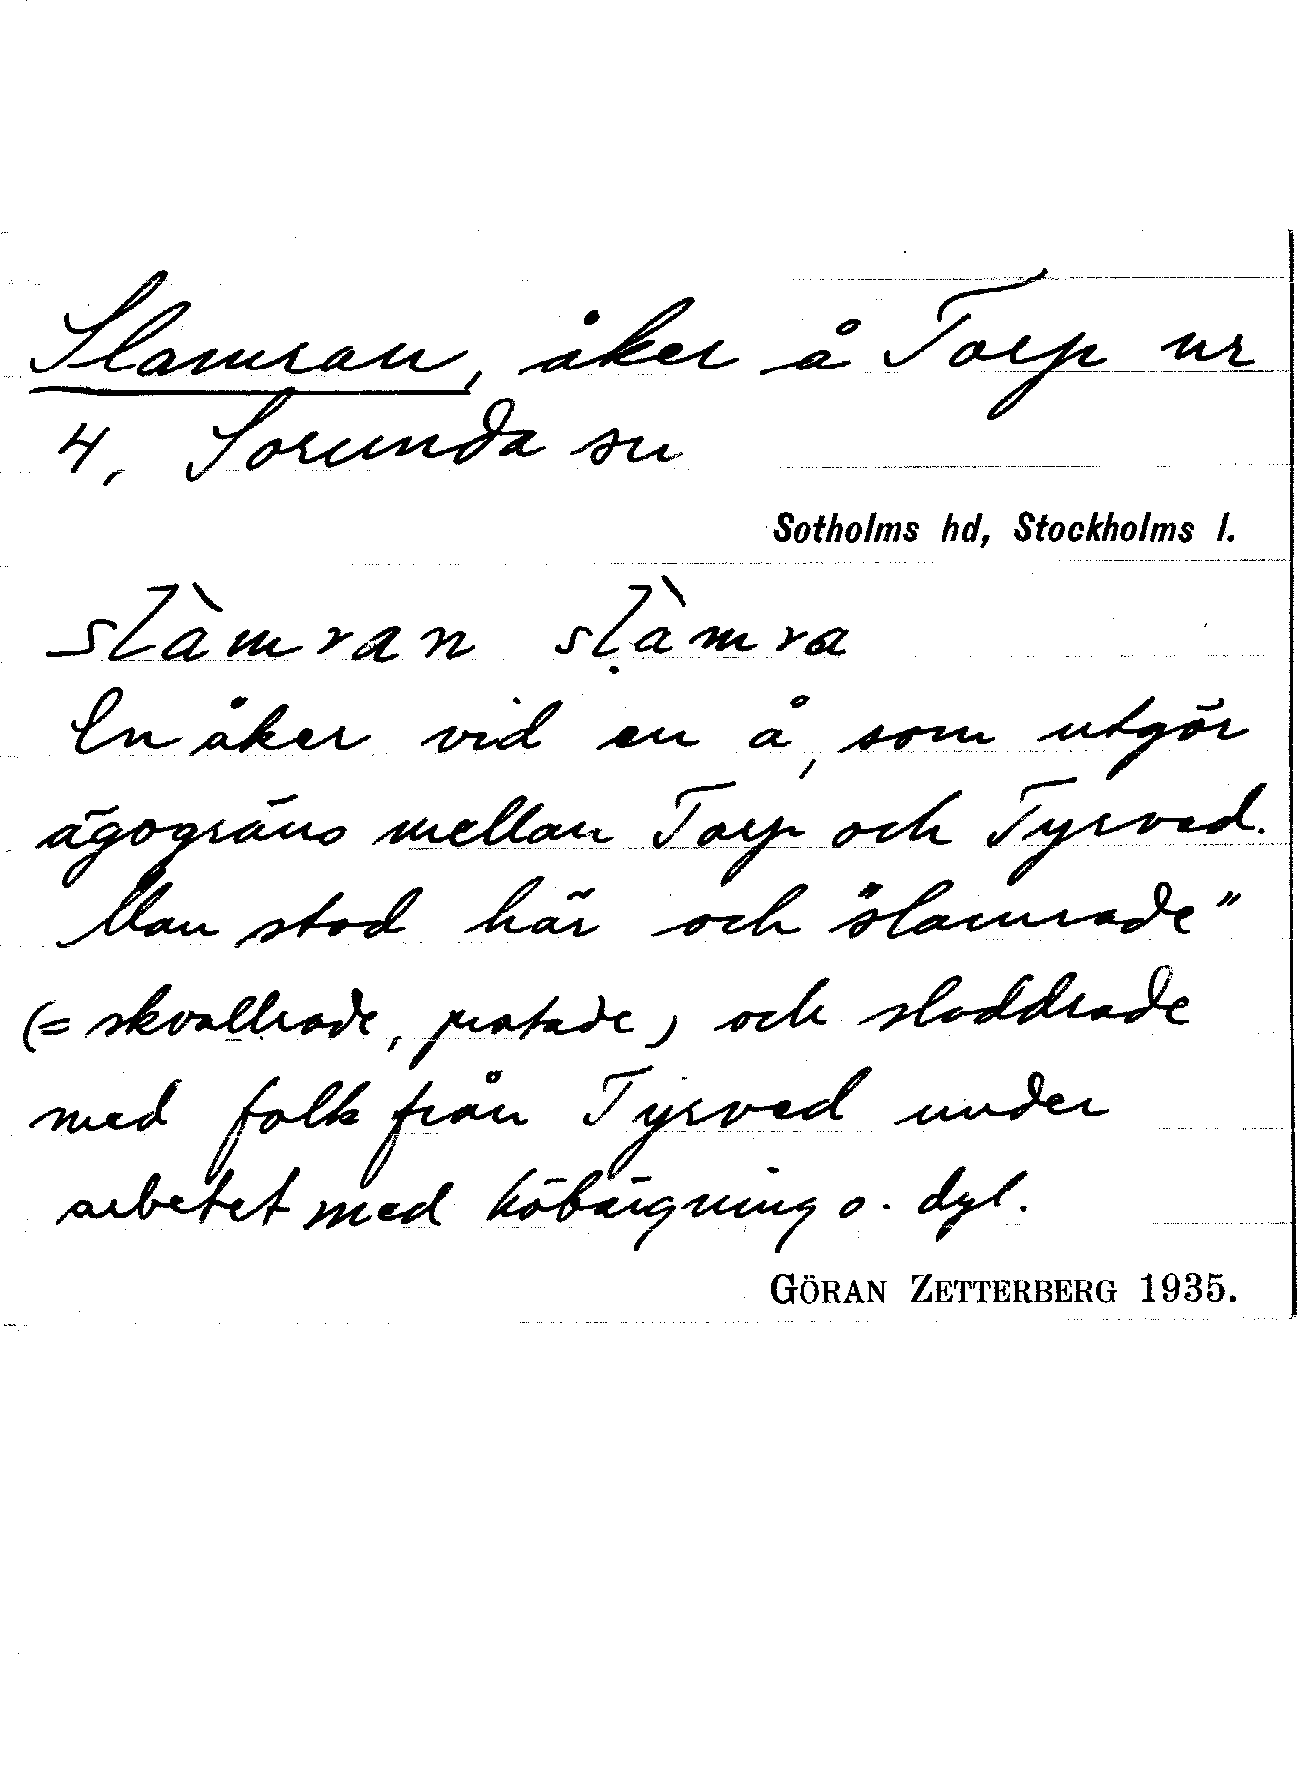 Slamran, åker å Torp nr
4, Sorunda sn
Sotholms hd, Stockholms l.
slàmran slàmra
En åker vid en å, som utgör
ägogräns mellan Torp och Tyrved.
Man stod här och "slamrade"
(= skvallrade, pratade) och sladdrade
med folk från Tyrved under
arbetet med höbärgning o. dyl.
GÖRAN ZETTERBERG 1935.